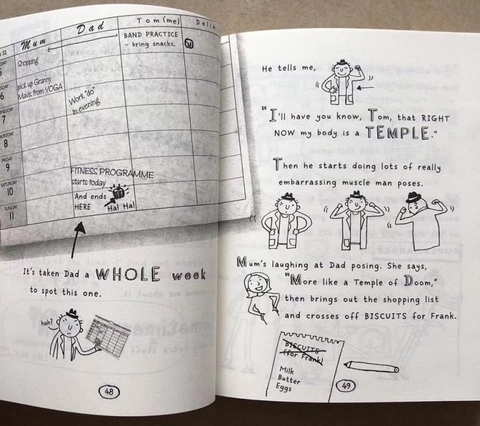 Mum Dad Tom (me) Delia
Shopping
BAND PRACTICE
- bring snacks.
5
pick up Granny
Mavis from YOGA
6
7
Work "do"
in evening
8
FRIDAY
9
SATURDAY
10
FITNESS PROGRAMME
starts today
SUNDAY
11
And ends
HERE
Ha! Ha!
It's taken Dad a WHOLE week
to spot this one.
huh?
48
He tells me,
"I'll have you know, Tom, that RIGHT
NOW my body is a TEMPLE."
Then he starts doing lots of really
embarrassing muscle man poses.
Mum's laughing at Dad posing. She says,
"More like a Temple of Doom,"
then brings out the shopping list
and crosses off BISCUITS for Frank.
BISCUITS
(for Frank)
Milk
Butter
Eggs
49